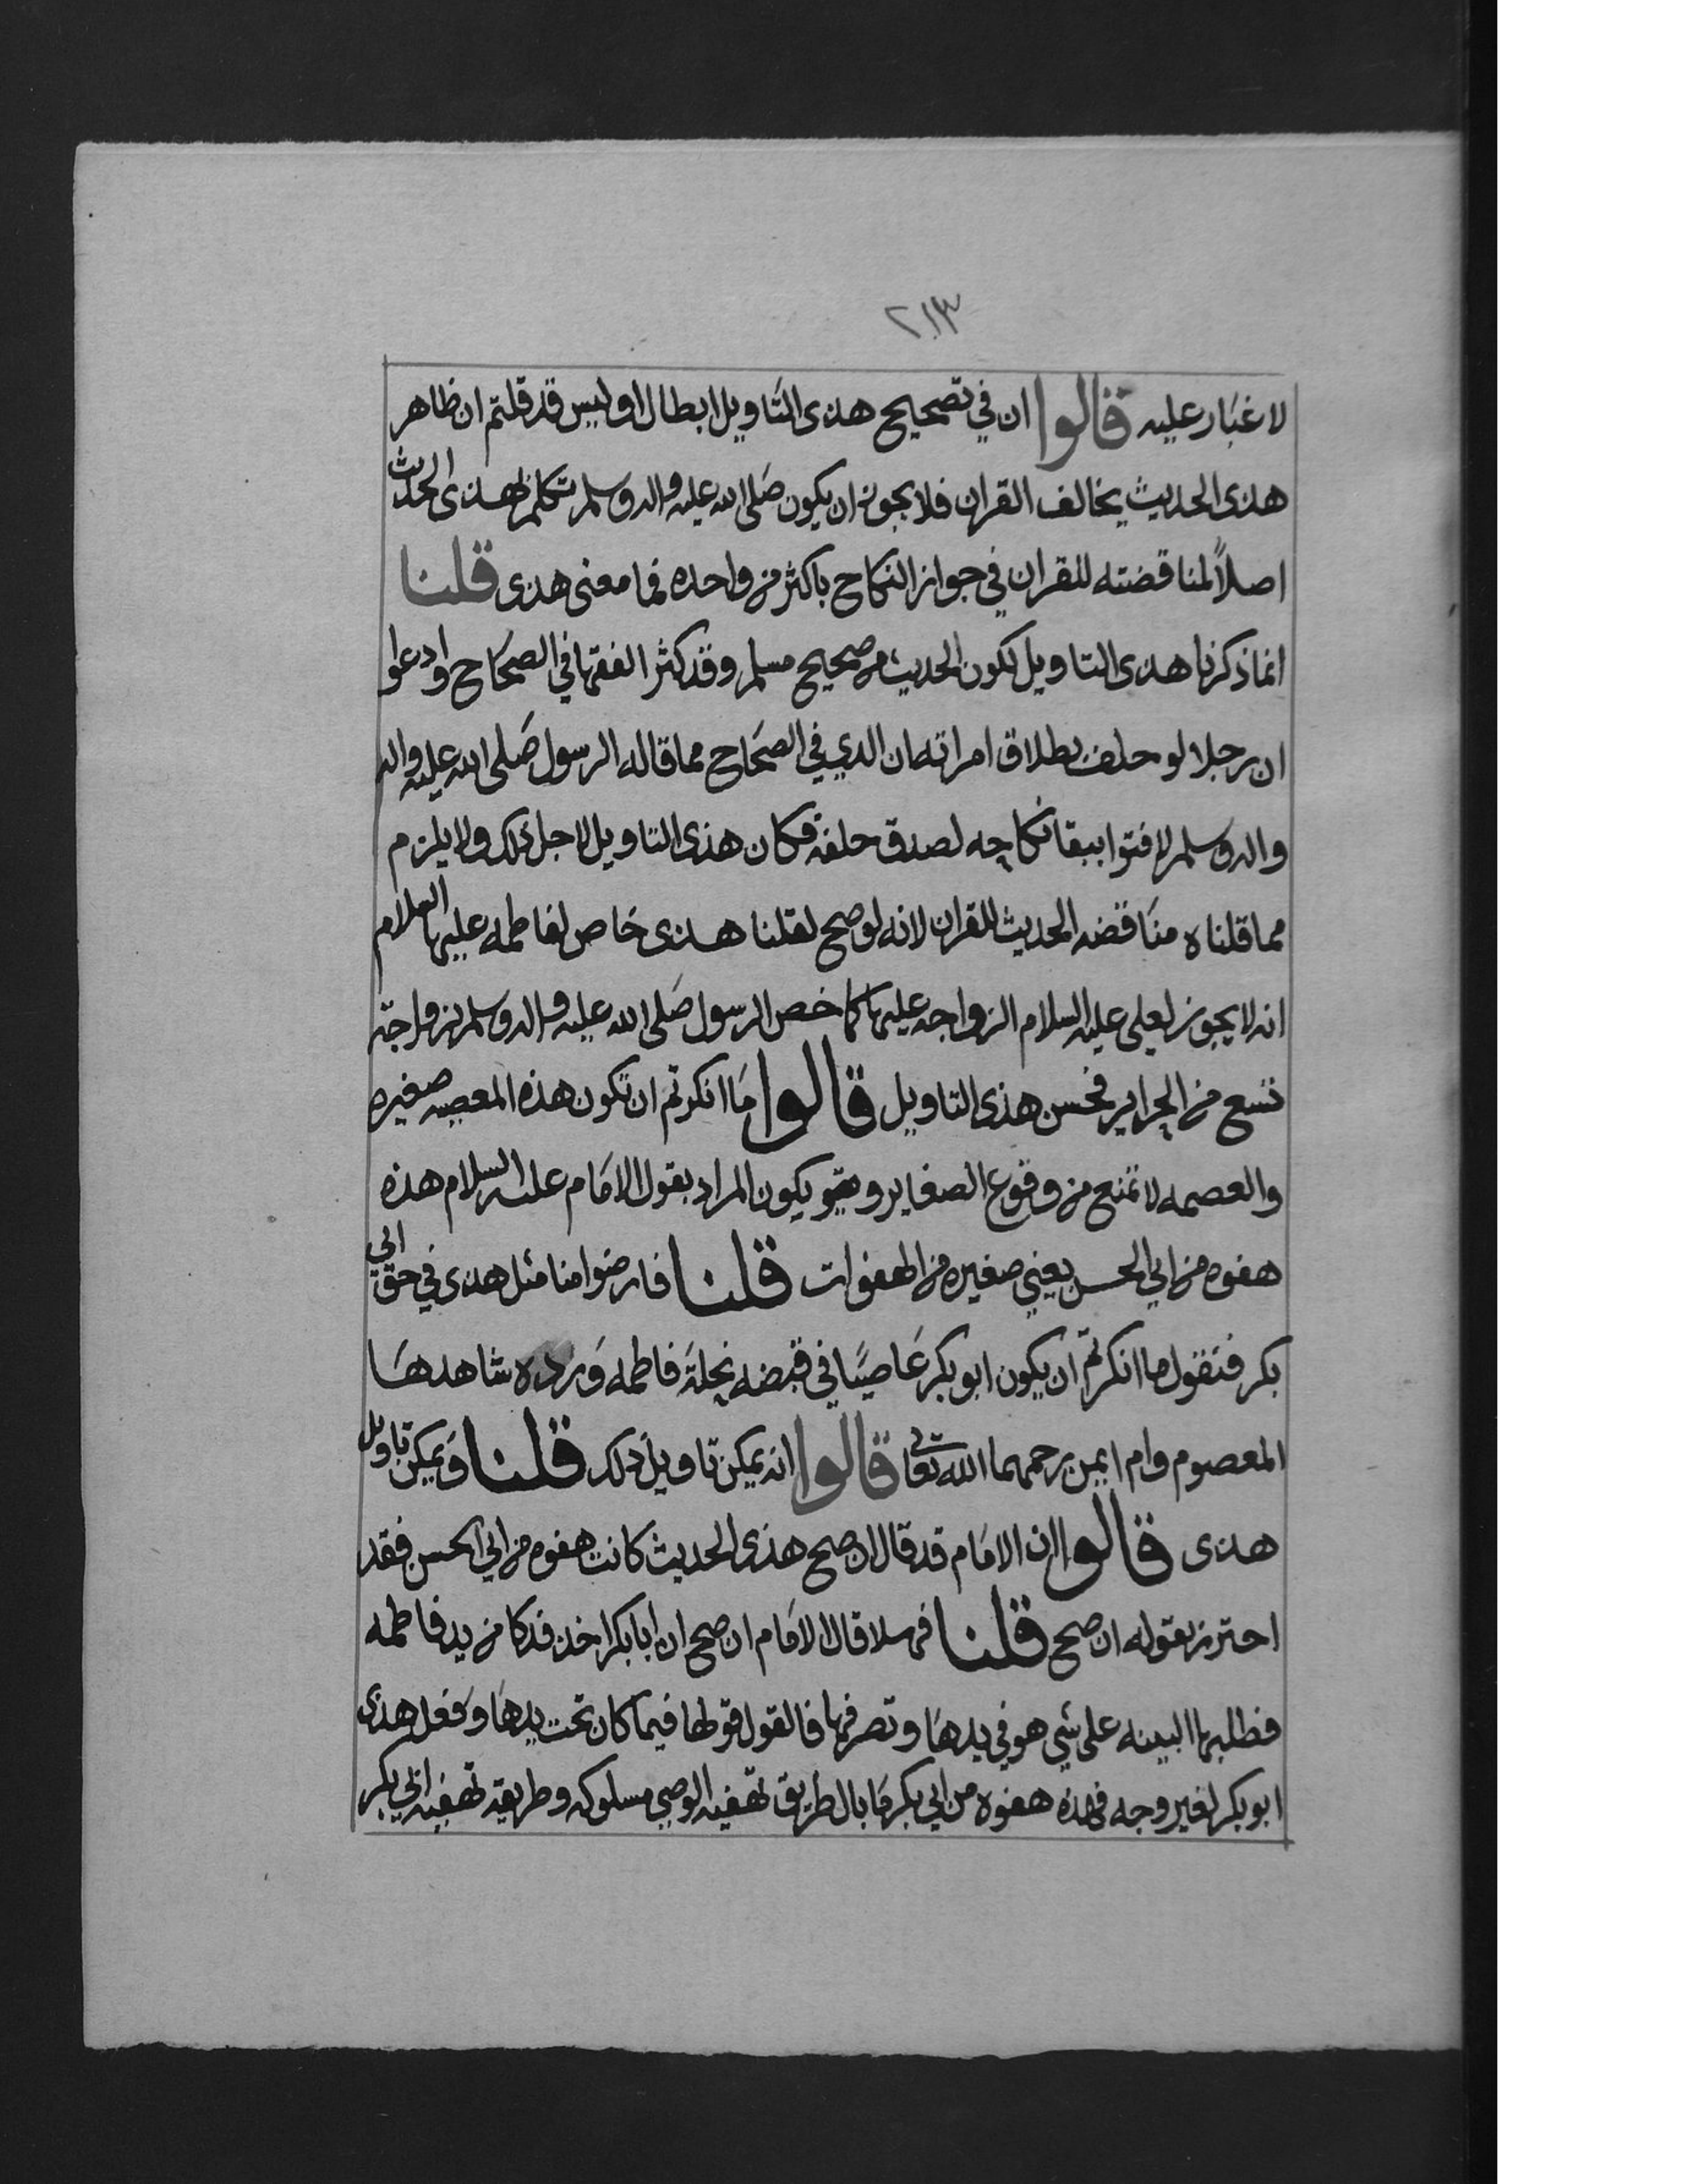 ٢١٣
لا غبار عليه قالوا ان في تصحيح هذى التاويل ابطال اوليس قد قلتم ان ظاهر
هذى الحديث يخالف القران فلا يجوز ان يكون صلى الله عليه واله وسلم تكلم بهذى الحديث
اصلاً لمناقضته للقران في جواز النكاح باكثر من واحده فما معنى هذى قلنا
انما ذكرنا هذى التاويل لكون الحديث من صحيح مسلم وقد كثر الفقها في الصحاح وادعوا
ان رجلا لو حلف بطلاق امراته ان الدي في الصحاح مما قاله الرسول صلى الله عليه واله
واله وسلم لافتوا ببقا نكاحه لصدق حلفه فكان هذى التاويل لاجل ذلك ولا يلزم
مما قلناه مناقضه الحديث للقران لانه لو صح لقلنا هذى خاص لفاطمه عليها السلام
انه لا يجوز لعلي عليه السلام الزواجه عليها كما خص الرسول صلى الله عليه واله وسلم بزواجته
تسع من الحراير فحسن هذى التاويل قالوا ما انكرتم ان تكون هذه المعصيه صغيره
والعصمه لا تمنع من وقوع الصغاير و يكون المراد بقول الامام عليه السلام هذه
هفوه من ابي الحسن يعني صغيره من الهفوات قلنا فارضوا منا مثل هذى في حق ابي
بكر فنقول ما انكرتم ان يكون ابو بكر عاصيًا في قبضه نحلة فاطمه ورده شاهدها
المعصوم وام ايمن رحمهما الله تعالى قالوا انه يمكن تاويل ذلك قلنا ويمكن تاويل
هذى قالوا ان الامام قد قال ان صح هذى الحديث كانت هفوه من ابي الحسن فقد
احترز بقوله ان صح قلنا فهلا قال الامام ان صح ان ابا بكر اخذ فدكا من يد فاطمه
فطلبها البينه على شي هو في يدها وتصرفها فالقول قولها فيما كان تحت يدها وفعل هذى
ابو بكر لغير وجه فهذه هفوه من ابي بكر ما بال طريق تهفيه الوصي مسلوكه وطريقه تهفيه ابي بكر